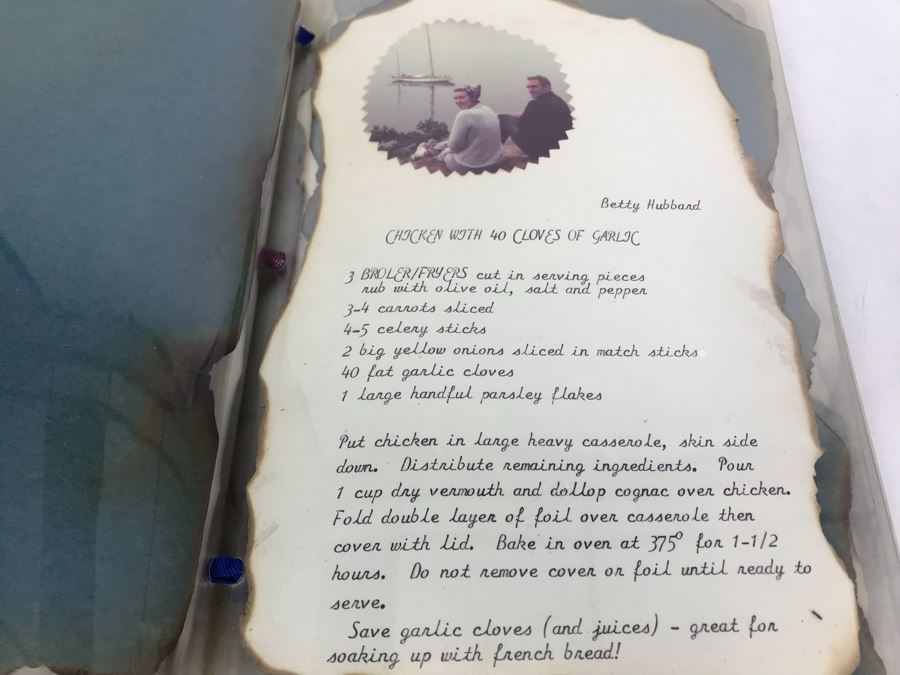 Betty Hubbard
CHICKEN WITH 40 CLOVES OF GARLIC
3 BROLER/FRYERS cut in serving pieces
rub with olive oil, salt and pepper
3-4 carrots sliced
4-5 celery sticks
2 big yellow onions sliced in match sticks
40 fat garlic cloves
1 large handful parsley flakes
Put chicken in large heavy casserole, skin side
down. Distribute remaining ingredients. Pour
1 cup dry vermouth and dollop cognac over chicken.
Fold double layer of foil over casserole then
cover with lid. Bake in oven at 375° for 1-1/2
hours. Do not remove cover or foil until ready to
serve.
Save garlic cloves (and juices) - great for
soaking up with french bread!